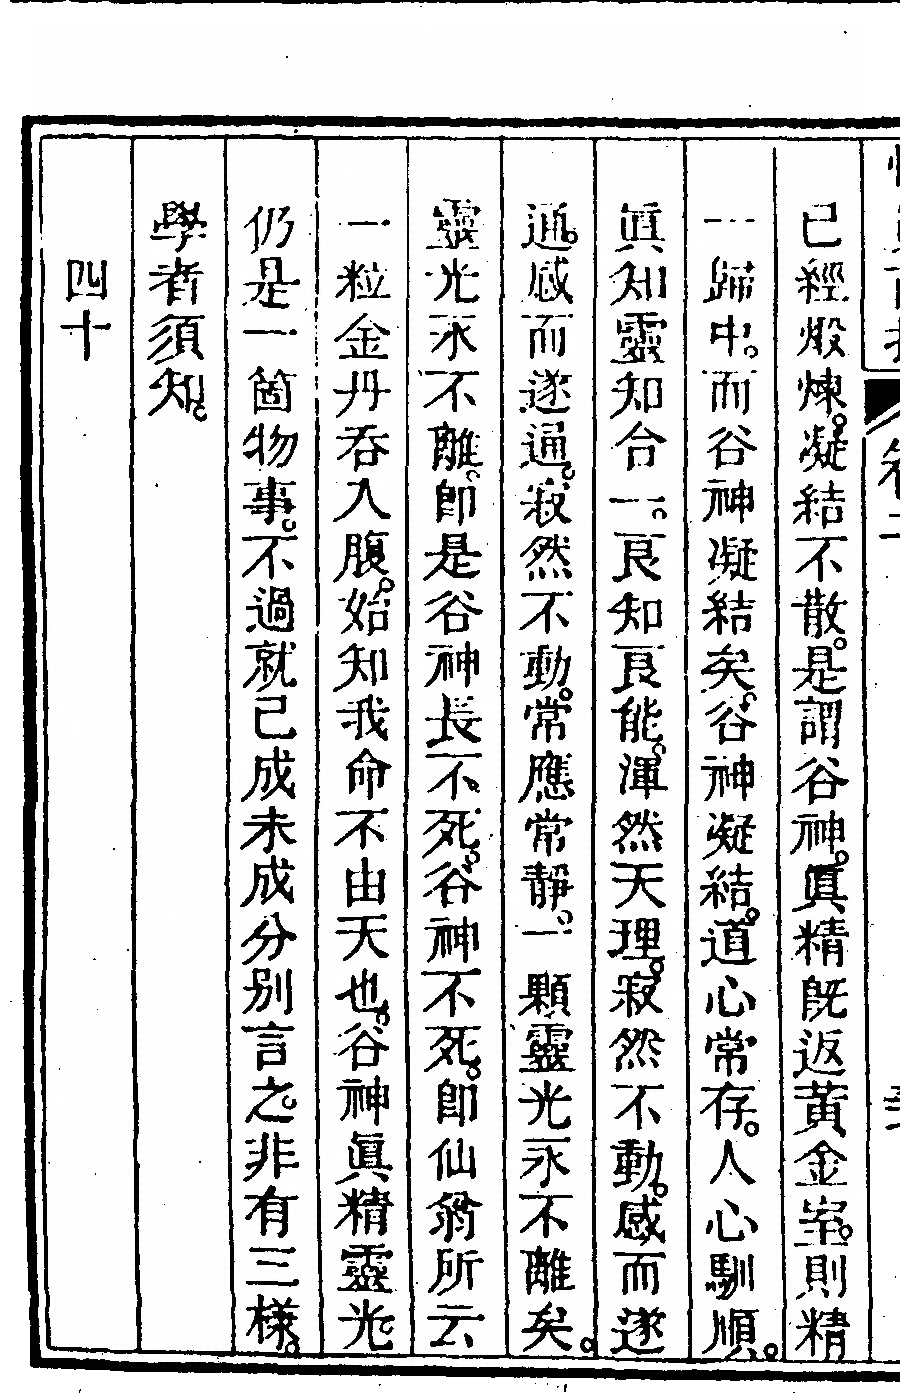 已經煅煉。凝結不散。是謂谷神。眞精既返黃金室。則精
一歸中。而谷神凝結矣。谷神凝結。道心常存。人心馴順。
眞知靈知合一。良知良能。渾然天理。寂然不動。感而遂
通。感而遂通。寂然不動。常應常靜。一顆靈光永不離矣。
靈光永不離。卽是谷神長不死。谷神不死。卽仙翁所云
一粒金丹吞入腹。始知我命不由天也。谷神眞精靈光
仍是一箇物事。不過就已成未成分別言之。非有三樣。
學者須知。
四十